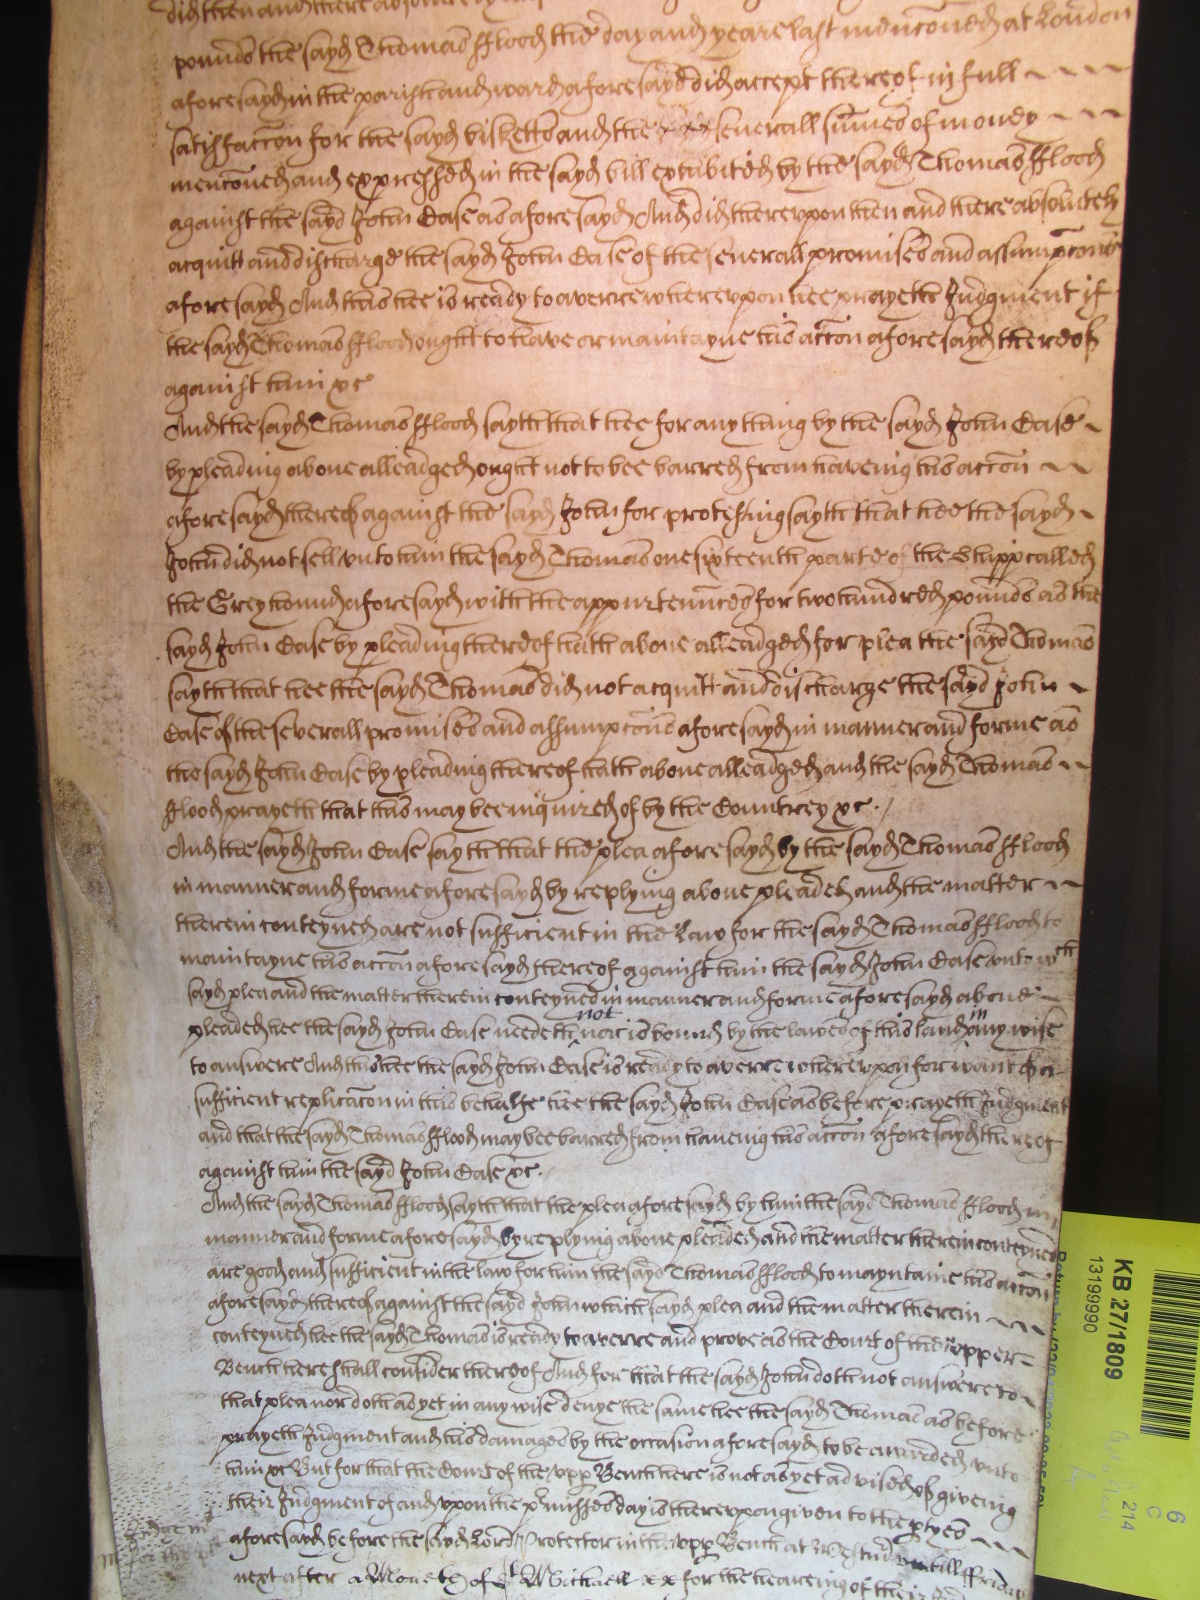 did then and there absolutely
pounds the sayd Thomas fflood the day and yeare last menc̃oned at London
aforesayd in the parish and ward aforesayd did accept thereof in full
satisfacc̃on for the sayd bisketts and the severall sum̃es of money
menc̃oned and expressed in the sayd bill exhibited by the sayd Thomas fflood
against the sayd John Case as aforesayd And did therevpon then and there absolutely
acquitt and discharge the sayd John Case of the severall promises and assumpc̃ons
aforesayd And this hee is ready to averre wherevpon hee prayeth Judgment if
the sayd Thomas fflood ought to have or maintayne his acc̃on aforesayd thereof
against him &c
And the sayd Thomas fflood sayth that hee for any thing by the sayd John Case
by pleading above alleadged ought not to bee barred from haveing his acc̃on
aforesayd thereof against the sayd John for protesting sayth that hee the sayd
John did not sell vnto him the sayd Thomas one sixteenth parte of the Shipp called
the Greyhound aforesayd with the appurtenn̄ces for two hundred pounds as the
sayd John Case by pleading thereof hath above alleadged for plea the sayd Thomas
sayth that hee the sayd Thomas did not acquitt and discharge the sayd John
Case of the severall promises and assumpc̃ons aforesayd in manner and forme as
the sayd John Case by pleading thereof hath above alleadged and the sayd Thomas
fflood prayeth that this may bee inquired of by the Countrey &c.
And the sayd John Case sayth that the plea aforesayd by the sayd Thomas fflood
in manner and forme aforesayd by replying above pleaded and the matter
therein conteyned are not sufficient in the Law for the sayd Thomas fflood to
maintayne his acc̃on aforesayd thereof against him the sayd John Case vnto wch
sayd plea and the matter therein conteyned in manner and forme aforesayd above
pleaded hee the sayd John Case needeth not nor is bound by the lawes of this land in any wise
to answere And this hee the sayd John Case is ready to averre wherevpon for want of a
sufficient replicac̃on in this behalfe hee the sayd John Case as before prayeth Judgment
and that the sayd Thomas fflood may bee barred from haveing his acc̃on aforesayd thereof
against him the sayd John Case &c.
And the sayd Thomas fflood sayth that the plea aforesayd by him the sayd Thomas fflood in
manner and forme aforesayd by replying above pleaded and the matter therein conteyned
are good and sufficient in the law for him the sayd Thomas fflood to mayntaine his acc̃on
aforesayd thereof against the sayd John which sayd plea and the matter therein
conteyned hee the sayd Thomas is ready to averre and prove as the Court of the vpper
Bench here shall consider thereof And for that the sayd John doth not answere to
that plea nor doth as yet in any wise denye the same hee the sayd Thomas as before
prayeth Judgment and his damages by the occasion aforesayd to be awarded vnto
him &c But for that the Court of the vpp̱ Bench here is not as yet advised of giveing
their Judgment of and vpon the p̱misses day is therevpon given to the p̱tyes
aforesayd before the sayd Lord Protector in the vpp̱ Bench at Westm̃ vntill ffriday
next after a Moneth of St Michaell &c for the heareing of their
KB 27/1809
13199990
6
C
214